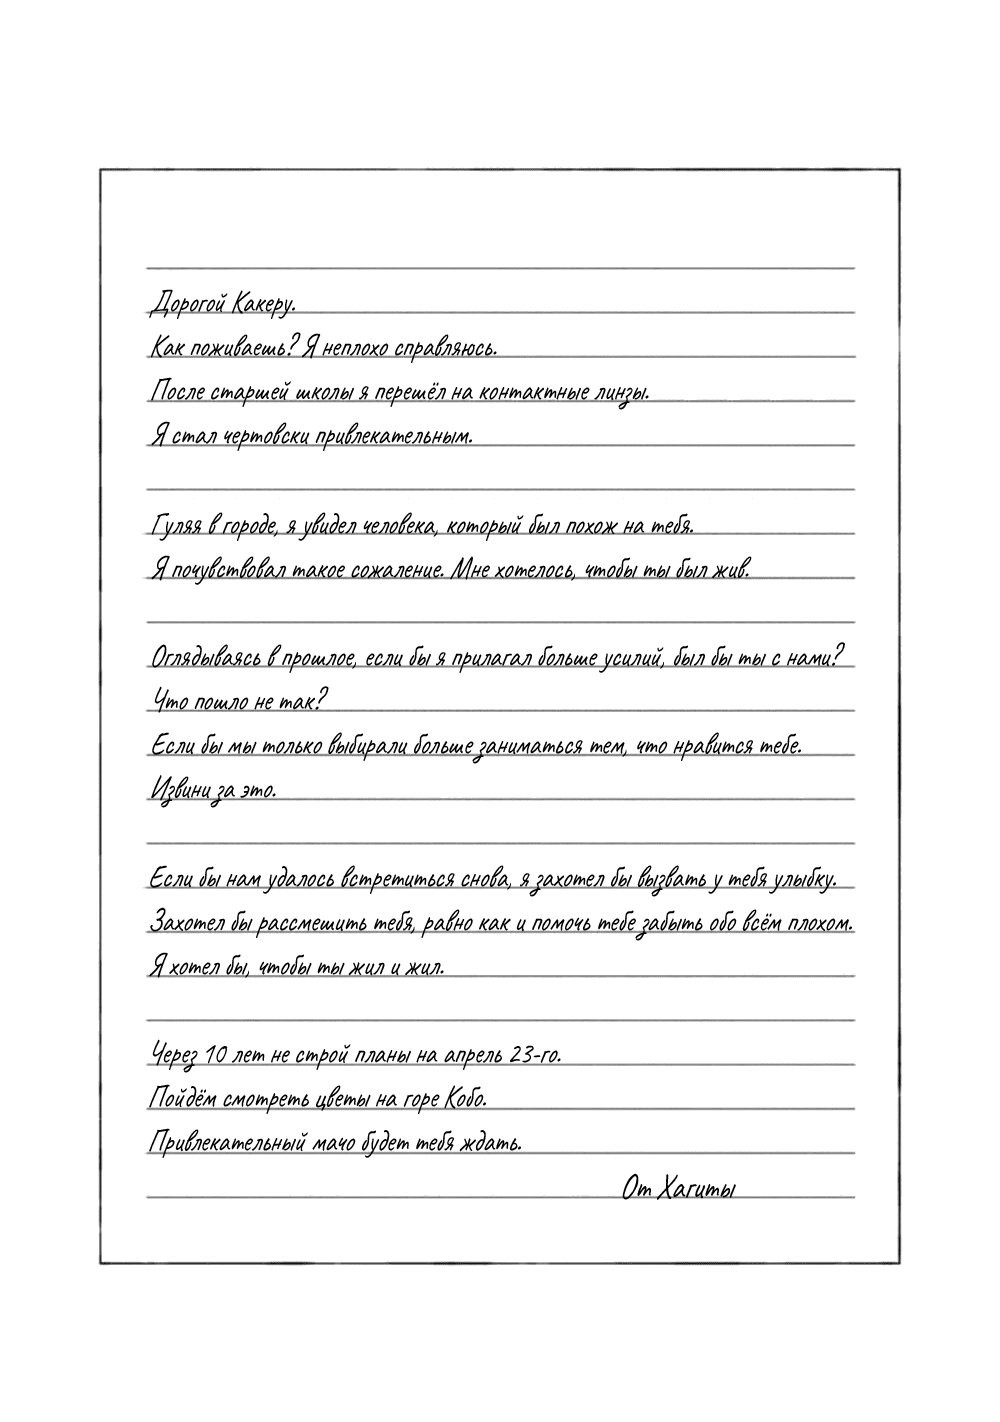 Дорогой Какеру.
Как поживаешь? Я неплохо справляюсь.
После старшей школы я перешёл на контактные линзы.
Я стал чертовски привлекательным.
Гуляя в городе, я увидел человека, который был похож на тебя.
Я почувствовал такое сожаление. Мне хотелось, чтобы ты был жив.
Оглядываясь в прошлое, если бы я прилагал больше усилий, был бы ты с нами?
Что пошло не так?
Если бы мы только выбирали больше заниматься тем, что нравится тебе.
Извини за это.
Если бы нам удалось встретиться снова, я захотел бы вызвать у тебя улыбку.
Захотел бы рассмешить тебя, равно как и помочь тебе забыть обо всём плохом.
Я хотел бы, чтобы ты жил и жил.
Через 10 лет не строй планы на апрель 23-го.
Пойдём смотреть цветы на горе Кобо.
Привлекательный мачо будет тебя ждать.
От Хагиты